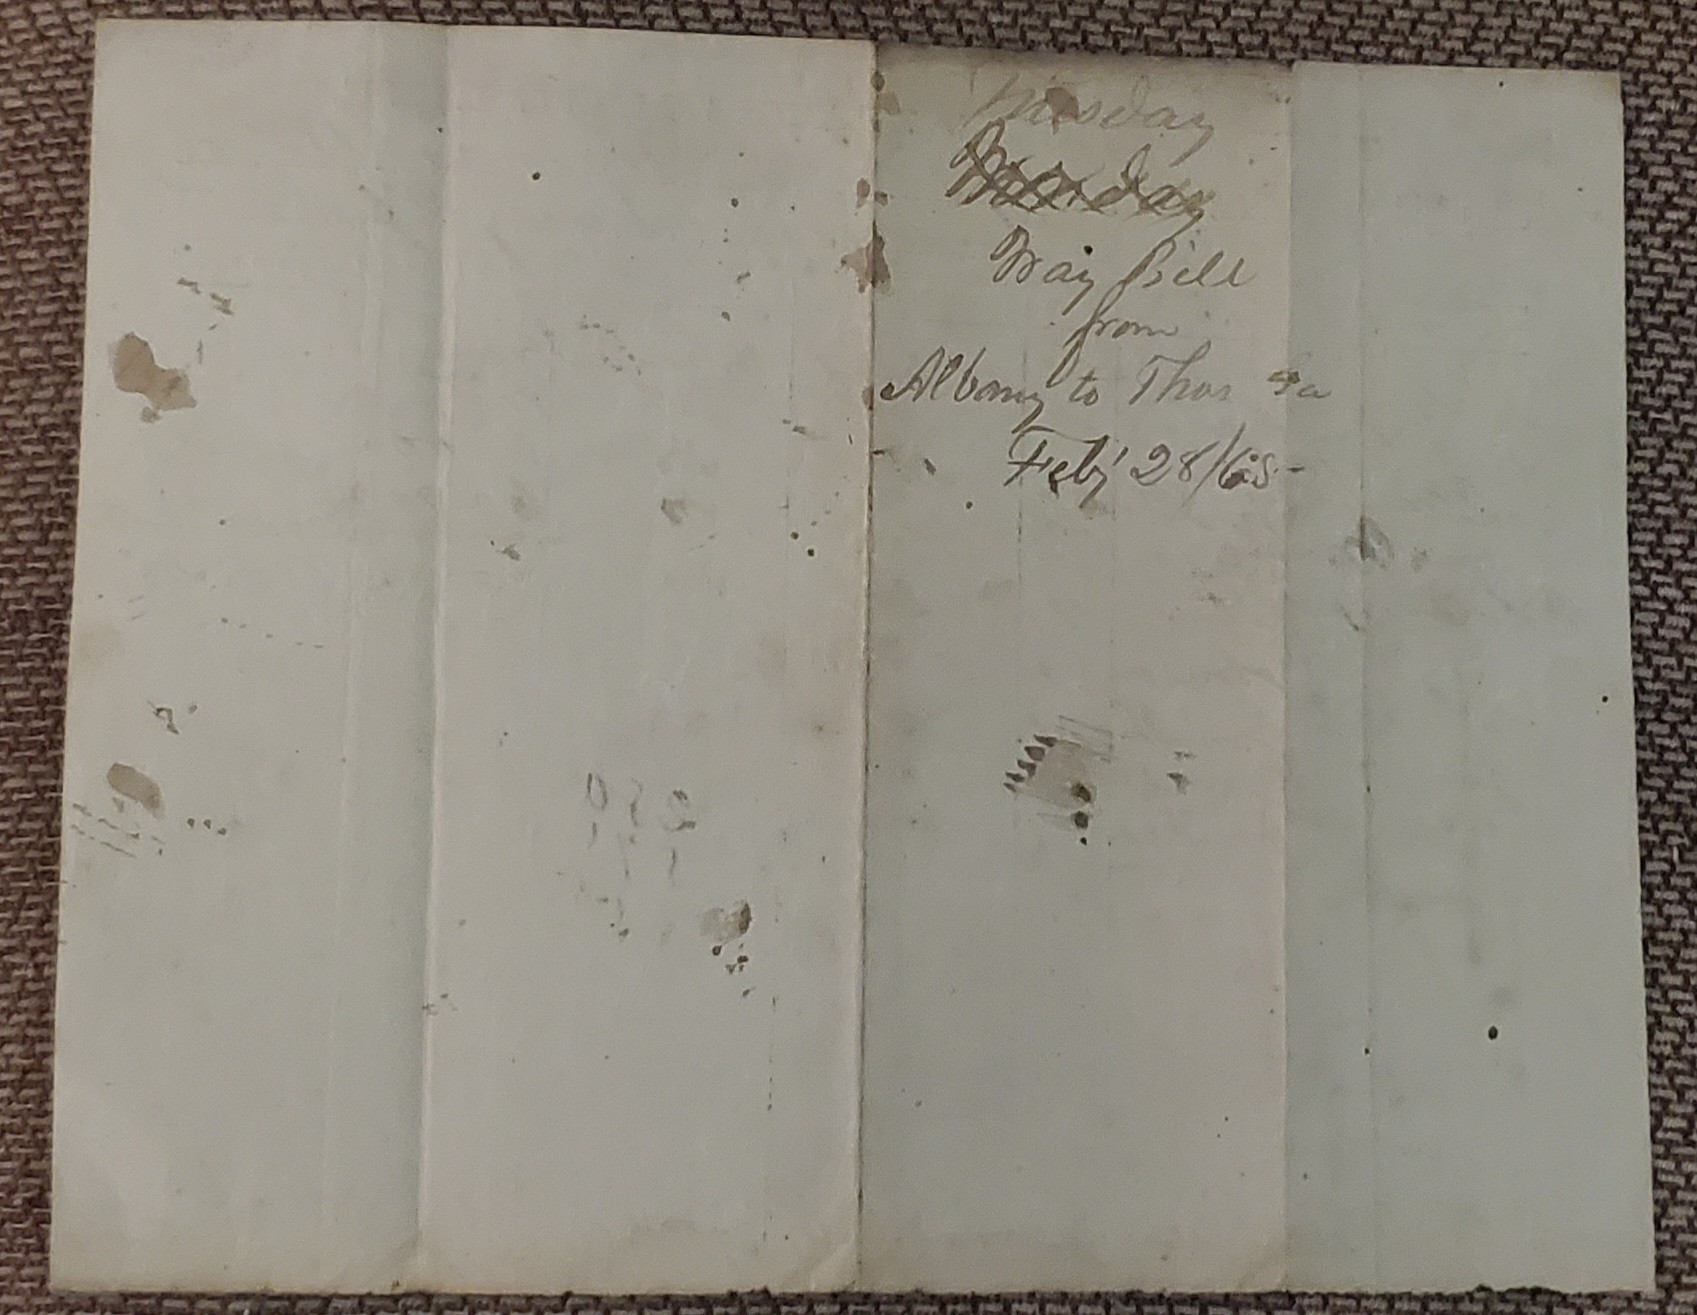 Tuesday
Monday
Way Bill
from
Albany to Thos Ga
Feby 28/65-